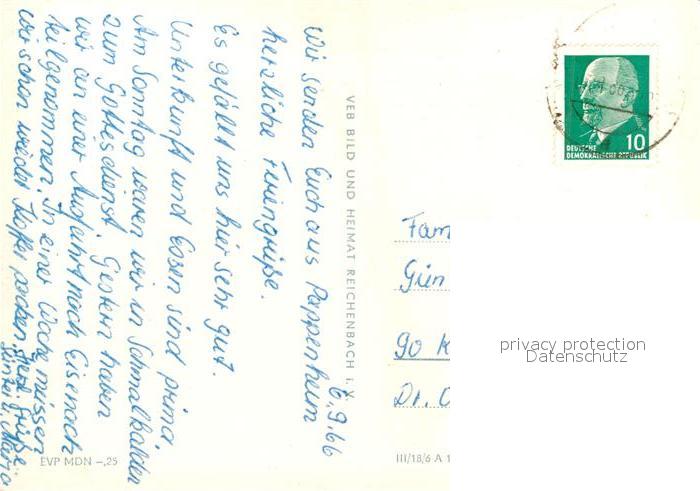 6.9.66
Wir senden Euch aus Pappenheim
herzliche Feriengrüße.
Es gefällt uns hier sehr gut.
Unterkunft und Essen sind prima.
Am Sonntag waren wir in Schmalkalden
zum Gottesdienst. Gestern haben
wir an einer Ausfahrt nach Eisenach
teilgenommen. In einer Woche müssen
wir schon wieder Koffer packen. Herzl. Grüße
Maria
VEB BILD UND HEIMAT REICHENBACH i. V.
EVP MDN –,25
III/18/6 A 1
10
DEUTSCHE
DEMOKRATISCHE REPUBLIK
Fam
Gün
90 K
privacy protection
Datenschutz